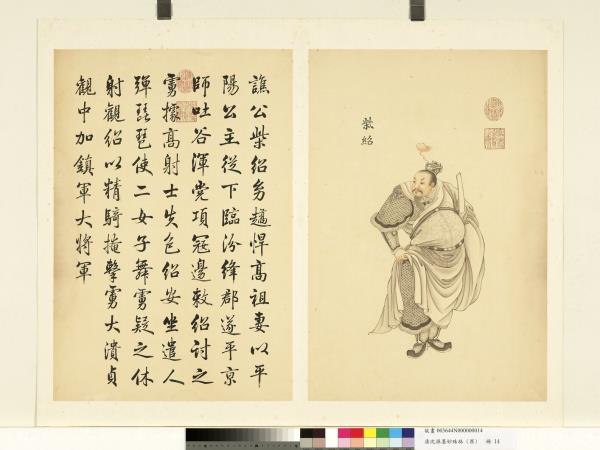 譙公柴紹多趫悍高祖妻以平
陽公主從下臨汾絳郡遂平京
師吐谷渾党項寇邊敕紹討之
虜據高射士失色紹安坐遣人
彈琵琶使二女子舞虜疑之休
射觀紹以精騎掩擊虜大潰貞
觀中加鎮軍大將軍
柴紹
故畫 003644N000000014
清沈振麟妙珠林（貳） 冊 14